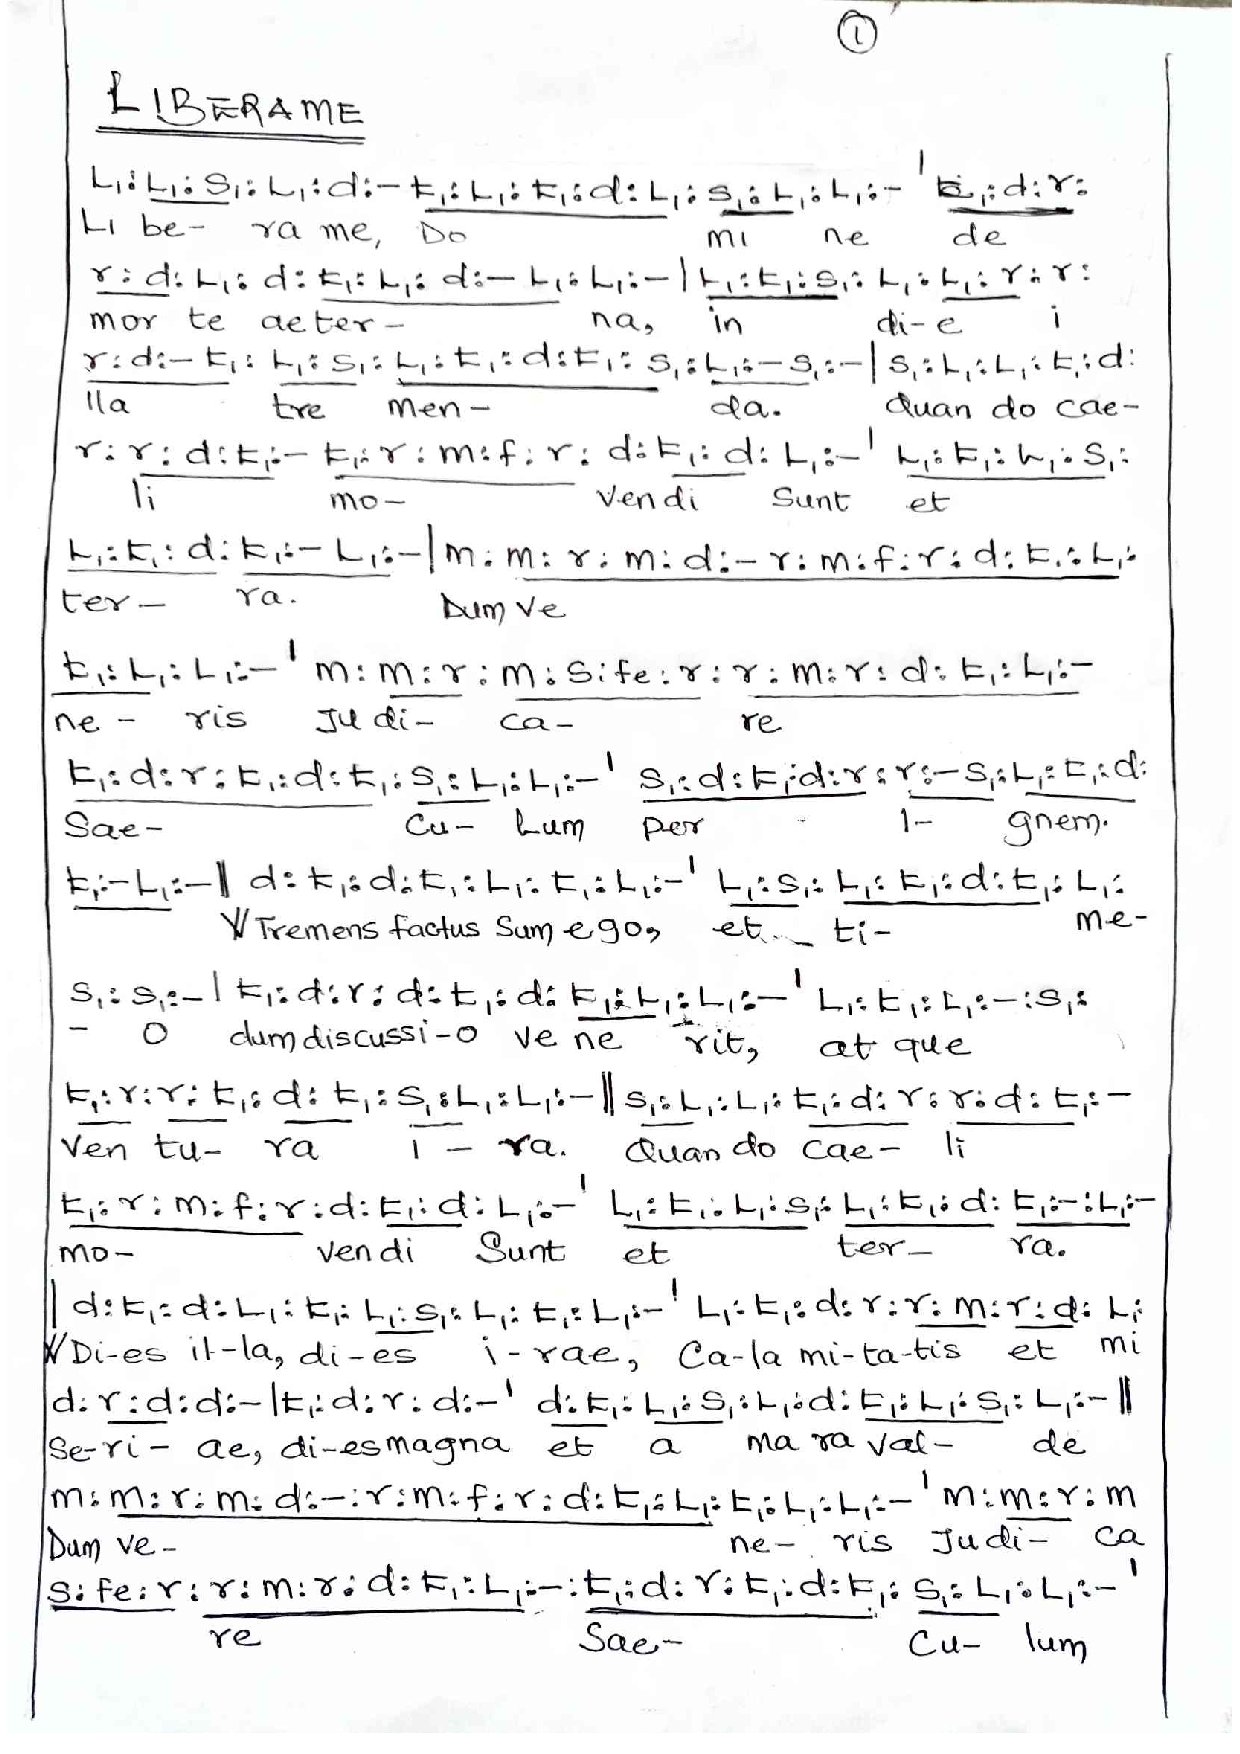 1
LIBERAME
L₁:L₁:S₁:L₁:d:–t₁:L₁:t₁:d:L₁:s₁:L₁:L₁:–' t₁:d:r:
Li be- ra me, Do mi ne de
r:d:L₁:d:t₁:L₁:d:–L₁:L₁:–|L₁:t₁:s₁:L₁:L₁:r:r:
mor te aeter- na, in di-e i
r:d:–t₁:L₁:s₁:L₁:t₁:d:t₁:s₁:L₁:–s₁:–|s₁:L₁:L₁:t₁:d:
lla tre men- da. Quan do cae-
r:r:d:t₁:–t₁:r:m:f:r:d:t₁:d:L₁:–' L₁:t₁:L₁:S₁:
li mo- vendi Sunt et
L₁:t₁:d:t₁:–L₁:–|m:m:r:m:d:–r:m:f:r:d:t₁:L₁:
ter- ra. Dum ve
t₁:L₁:L₁:–' m:m:r:m:S:fe:r:r:m:r:d:t₁:L₁:–
ne- ris Ju di- ca- re
t₁:d:r:t₁:d:t₁:s₁:L₁:L₁:–' s₁:d:t₁:d:r:r:–s₁:L₁:t₁:d:
Sae- Cu- Lum per I- gnem.
t₁:–L₁:–‖ d:t₁:d:t₁:L₁:t₁:L₁:–' L₁:s₁:L₁:t₁:d:t₁:L₁:
℣ Tremens factus Sum ego, et ti- me-
s₁:s₁:–|t₁:d:r:d:t₁:d:t₁:L₁:L₁:–' L₁:t₁:L₁:–:s₁:
- O dum discussi-o ve ne rit, at que
t₁:r:r:t₁:d:t₁:s₁:L₁:L₁:–‖s₁:L₁:L₁:t₁:d:r:r:d:t₁:–
Ven tu- ra i - ra. Quando cae- li
t₁:r:m:f:r:d:t₁:d:L₁:–' L₁:t₁:L₁:s₁:L₁:t₁:d:t₁:–:L₁:–
mo- vendi Sunt et ter- ra.
|d:t₁:d:L₁:t₁:L₁:s₁:L₁:t₁:L₁:–' L₁:t₁:d:r:r:m:r:d:L₁:
℣ Di-es il-la, di-es i-rae, Ca-la mi-ta-tis et mi
d:r:d:d:–|t₁:d:r:d:–' d:t₁:L₁:s₁:L₁:d:t₁:L₁:s₁:L₁:–‖
Se-ri- ae, di-es magna et a ma ra val- de
m:m:r:m:d:–:r:m:f:r:d:t₁:L₁:t₁:L₁:L₁:–' m:m:r:m
Dum ve- ne- ris Judi- ca
S:fe:r:r:m:r:d:t₁:L₁:–:t₁:d:r:t₁:d:t₁:s₁:L₁:L₁:–'
re Sae- Cu- lum